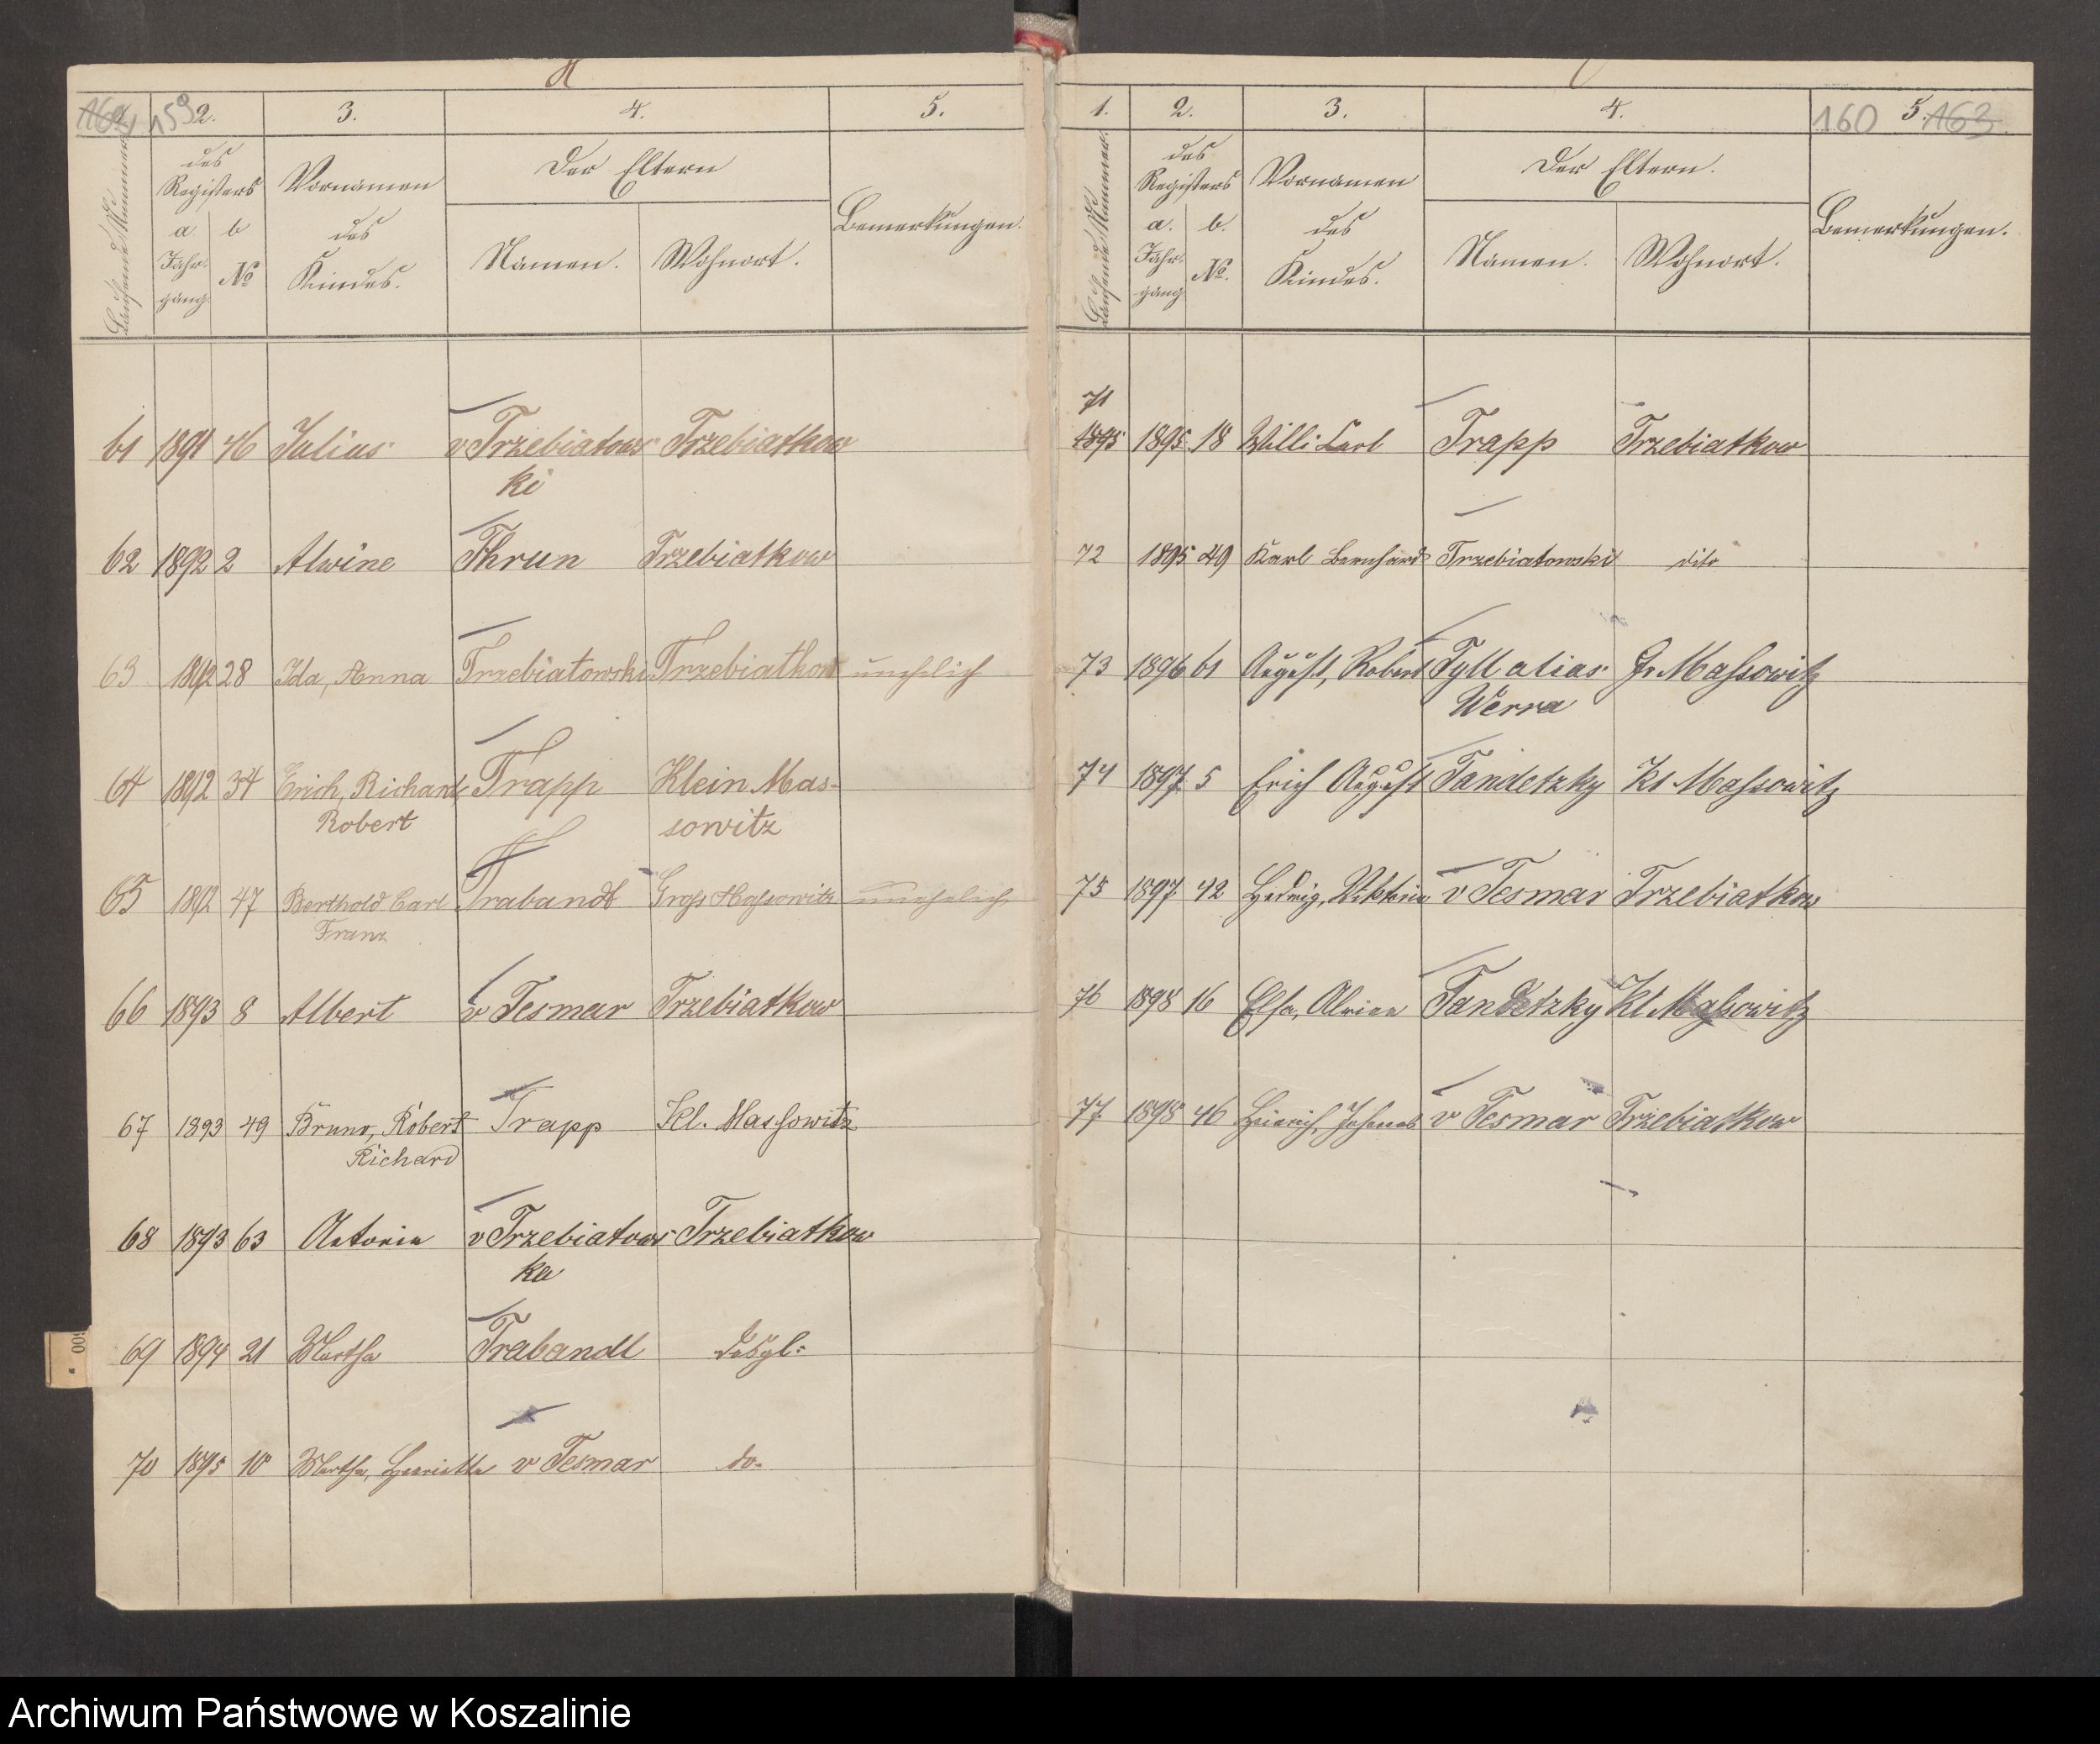 159 2. 3. 4. 5.
Laufende Nummer
des Registers
a. Jahrgang
b. No
Vornamen des Kindes.
Der Eltern
Namen. Wohnort.
Bemerkungen.
61 1891 46 Julius v Trzebiatows Trzebiatkow
ki
62 1892 2 Alwine Thrun Trzebiatkow
63 1892 28 Ida, Anna Trzebiatowski Trzebiatkow unehelich
64 1892 34 Erich, Richard Trapp Klein Mas-
Robert sowitz
65 1892 47 Berthold Carl Trabandt Gross Massowitz unehelich
Franz
66 1893 8 Albert v Tesmar Trzebiatkow
67 1893 49 Bruno, Robert Trapp Kl. Massowitz
Richard
68 1893 63 v Trzebiatows Trzebiatkow
ka
69 1894 21 Martha Trabandt desgl.
70 1895 10 Martha, Henriette v Tesmar do.
1. 2. 3. 4. 160 5. 163
Laufende Nummer
des Registers
a. Jahrgang
b. No.
Vornamen des Kindes.
Der Eltern.
Namen. Wohnort.
Bemerkungen.
71
1895 1895 18 Willi Carl Trapp Trzebiatkow
72 1895 49 Karl Bernhard Trzebiatowski dito
73 1896 61 August, Robert Tyll alias Gr Massowitz
Werra
74 1897 5 Erich August Tandetzky Kl Massowitz
75 1897 42 Hedwig, Viktoria v Tesmar Trzebiatkow
76 1898 16 Elsa, Tandetzky Kl Massowitz
77 1898 46 Heinrich, Johannes v Tesmar Trzebiatkow
Archiwum Państwowe w Koszalinie